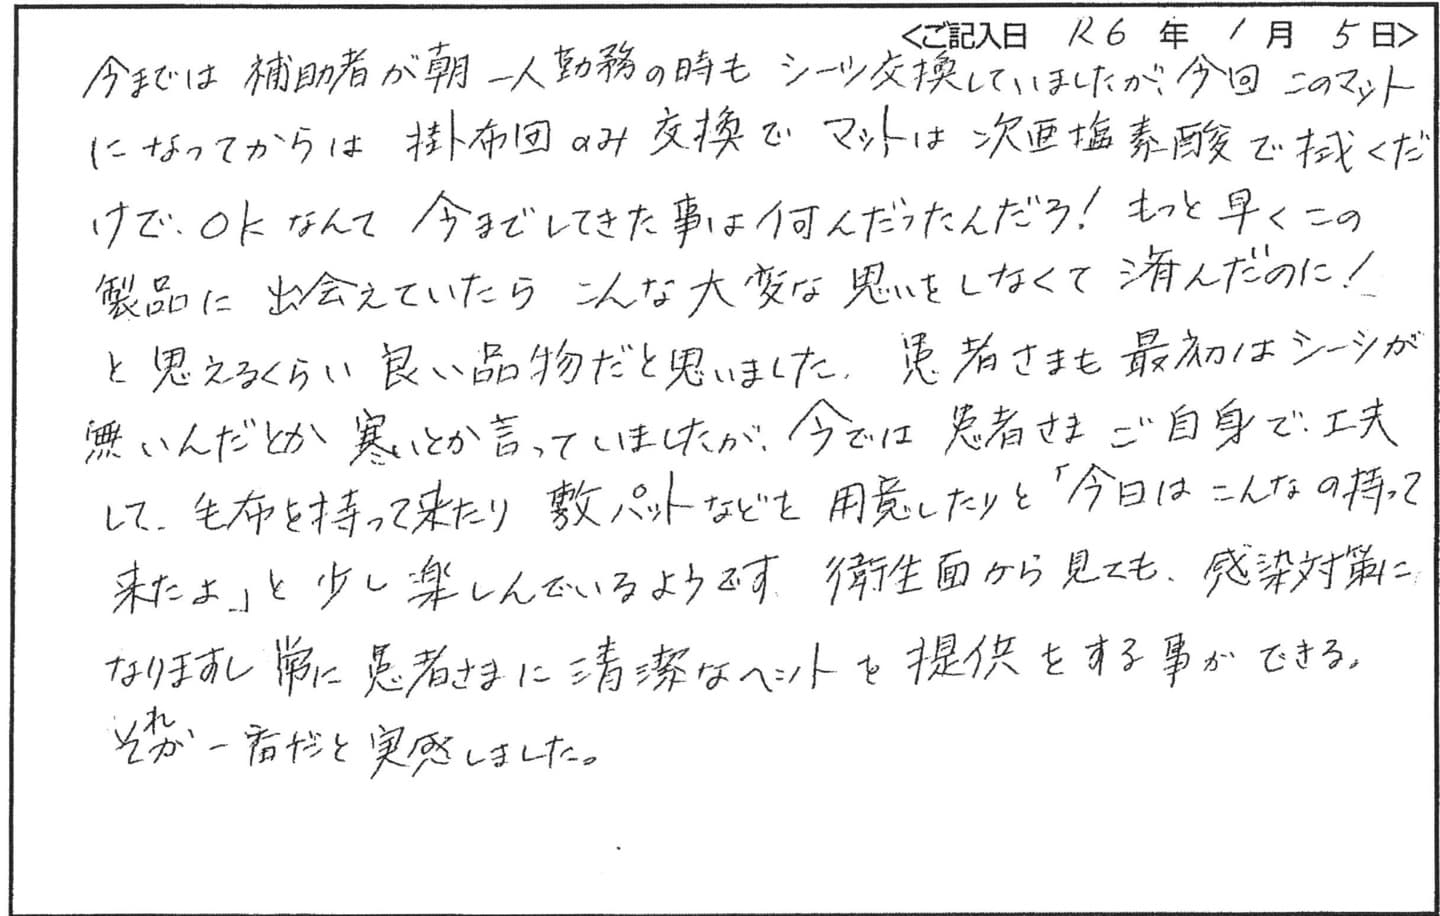 <ご記入日 R6 年 1 月 5 日>
今までは 補助者が朝 一人勤務の時も シーツ交換していましたが、今回 このマット
になってからは 掛布団のみ 交換で マットは 次亜塩素酸で拭くだ
けで、OKなんて 今までしてきた事は何んだったんだろ！ もっと早くこの
製品に 出会えていたら こんな大変な思いをしなくて 済んだのに！
と思えるくらい 良い品物だと思いました。 患者さまも 最初はシーツが
無いんだとか 寒いとか言っていましたが、今では 患者さま ご自身で、工夫
して、毛布を持って来たり 敷パットなどを 用意したりと「今日は こんなの持って
来たよ」と 少し楽しんでいるようです 衛生面から見ても、感染対策に
なりますし 常に 患者さまに 清潔なベットを 提供をする事ができる。
それが 一番だと 実感しました。